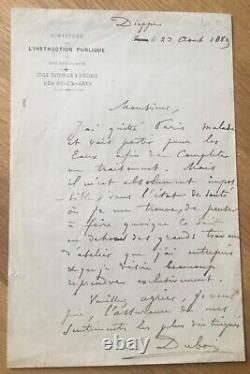 Dieppe
MINISTÈRE
DE
L'INSTRUCTION PUBLIQUE
le 22 Aout 1889
ÉCOLE NATIONALE & SPÉCIALE
DES BEAUX-ARTS
Monsieur,
J'ai quitté Paris malade
et vais partir pour les
Eaux afin de Compléter
un traitement. Mais
il m'est absolument impos
sible, dans l'état de santé
où je me trouve, de penser
à faire quoique ce soit
en dehors des grands travaux
d'atelier que j'ai entrepris
et que je désire beaucoup
reprendre exclusivement.
Veuillez agréer, je vous
prie l'assurance de mes
sentiments les plus distingués
Dubois